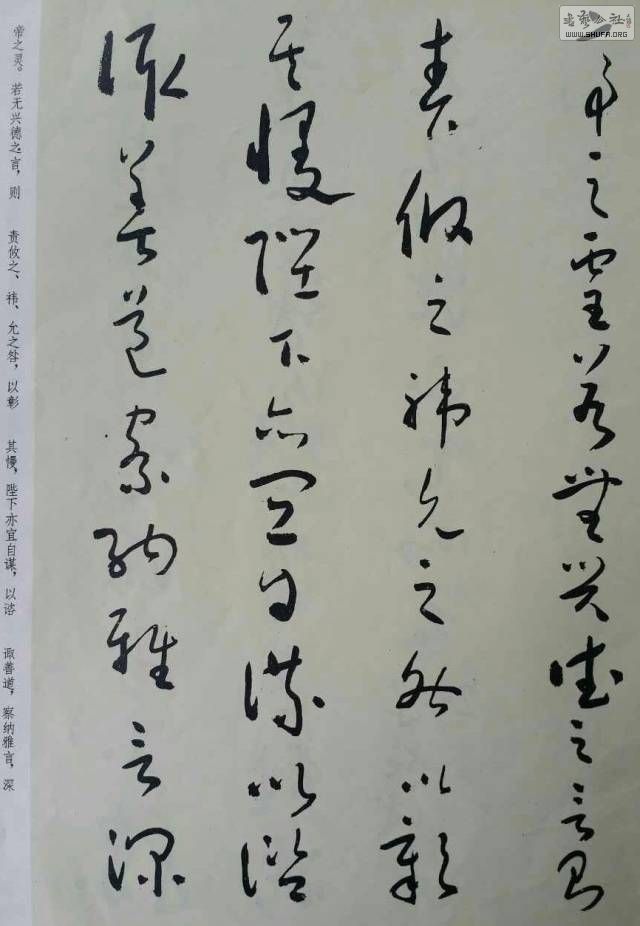 書藝公社
WWW.SHUFA.ORG
帝之靈若無興德之言則
責攸之禕允之咎以彰
其慢陛下亦宜自謀以諮
諏善道察納雅言深
帝之灵。若无兴德之言，则 责攸之、祎、允之咎，以彰 其慢，陛下亦宜自谋，以谘 诹善道，察纳雅言，深